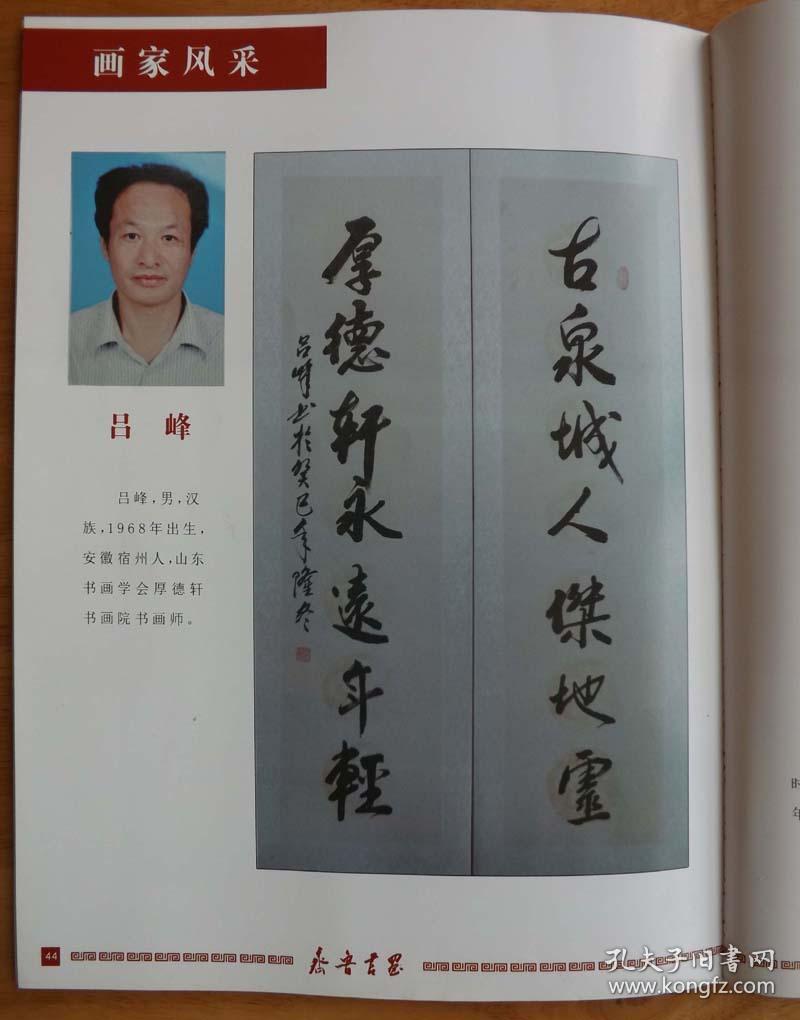 画家风采
吕峰
吕峰,男,汉
族,1968年出生,
安徽宿州人,山东
书画学会厚德轩
书画院书画师。
古泉城人傑地靈
厚德轩永遠年輕
吕峰书於癸巳年隆冬
44
齐鲁书画
时
年
孔夫子旧书网
www.kongfz.com